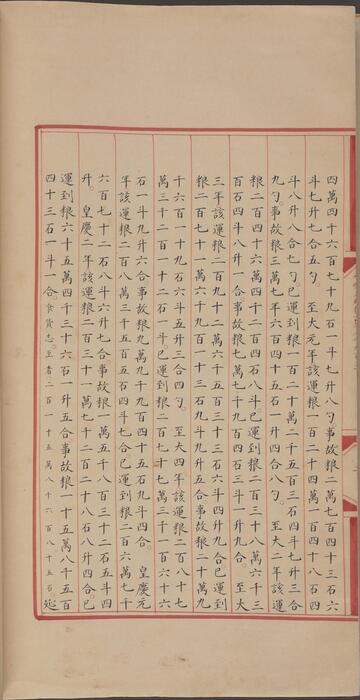 四萬四千六百七十九石一斗七升八勺事故粮二萬七百四十三石六
斗七升七合五勺。至大元年該運粮一百二十四萬一百四十八石四
斗八升八合七勺。已運到粮一百二十萬二千五百三石四斗七升三合
九勺。事故粮三萬七千六百四十五石一升四合八勺。至大二年該運
粮二百四十六萬四千二百四石八斗。已運到粮二百三十八萬六千三
百石四斗八升一合。事故粮七萬七千九百四石三斗一升九合。至大
三年該運粮二百九十二萬六千五百三十三石六斗四升九合。已運到
粮二百七十一萬六千九百一十三石九斗九升五合。事故粮二十萬九
千六百一十九石六斗五升三合四勺。至大四年該運粮二百八十七
萬三千二百一十二石一斗。已運到粮二百七十七萬三千一百六十六
石一斗九升六合。事故粮九萬九千九百四十五石九斗四合。皇慶元
年該運粮二百八萬三千五百五石四斗七合。已運到粮二百六萬七千
六百七十二石八斗六升七合。事故粮一萬五千八百三十二石五斗四
升。皇慶二年該運粮二百三十一萬七千二百二十八石八升四合。已
運到粮六十五萬四千三十六石一升五合。事故粮一十五萬八千五百
四十三石一斗一合。食貨志。至者二百一十五萬八千六百八十五石。延